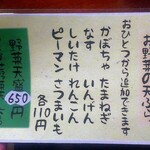 お野菜の天ぷら
おひとつから追加できます
かぼちゃ　たまねぎ
なす　いんげん
しいたけ　れんこん
ピーマン　さつまいも
各110円
野菜天
650円